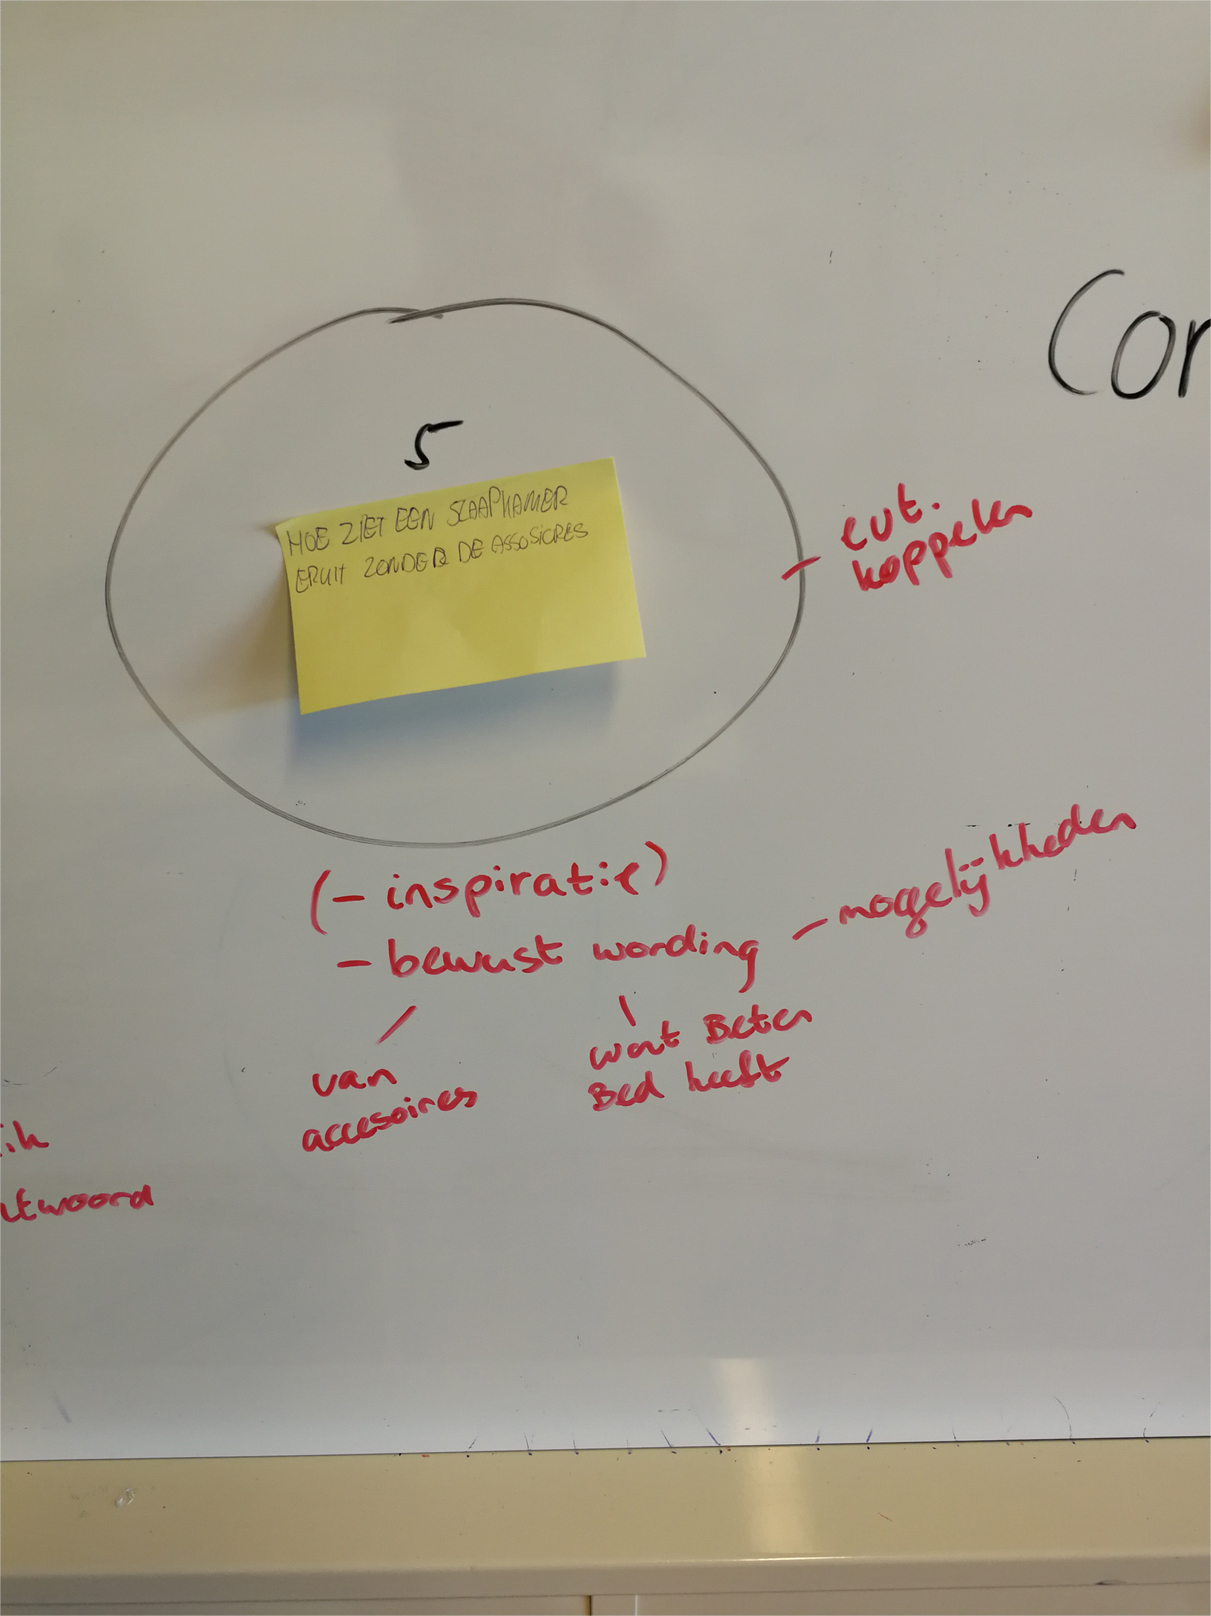 5
HOE ZIET EEN SLAAPKAMER
ERUIT ZONDER DE ASSOSICRES
Con
evt.
koppelen
(- inspiratie)
- bewust wording
- mogelijkheden
van
accesoires
wat Beter
Bed heeft